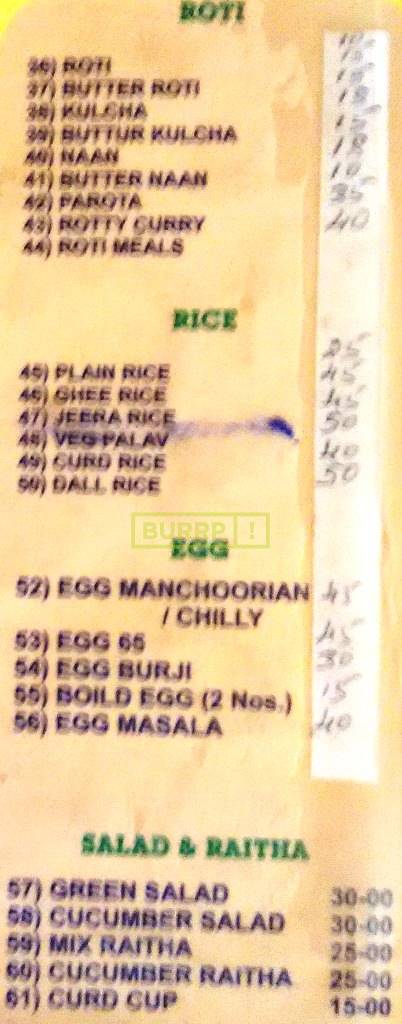 ROTI
36) ROTI 10
37) BUTTER ROTI 15
38) KULCHA 15
39) BUTTUR KULCHA 18
40) NAAN 15
41) BUTTER NAAN 18
42) PAROTA 10
43) ROTTY CURRY 35
44) ROTI MEALS 40
RICE
45) PLAIN RICE 25
46) GHEE RICE 45
47) JEERA RICE 45
48) VEG PALAV 50
49) CURD RICE 40
50) DALL RICE 50
BURRP!
EGG
52) EGG MANCHOORIAN 45
/ CHILLY
53) EGG 65 45
54) EGG BURJI 30
55) BOILD EGG (2 Nos.) 15
56) EGG MASALA 40
SALAD & RAITHA
57) GREEN SALAD 30-00
58) CUCUMBER SALAD 30-00
59) MIX RAITHA 25-00
60) CUCUMBER RAITHA 25-00
61) CURD CUP 15-00